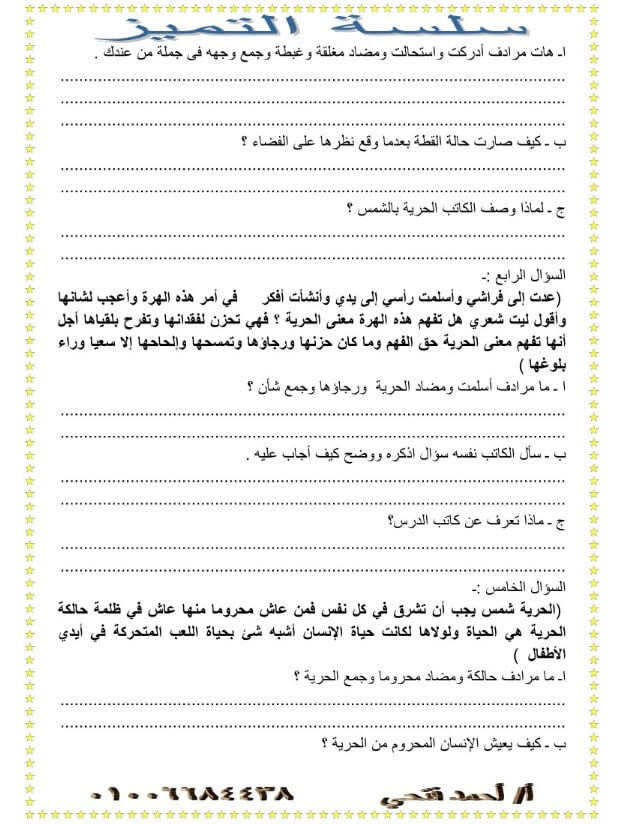 سلسة التميز
ا- هات مرادف أدركت واستحالت ومضاد مغلقة وغبطة وجمع وجهه فى جملة من عندك .
ب ـ كيف صارت حالة القطة بعدما وقع نظرها على الفضاء ؟
ج ـ لماذا وصف الكاتب الحرية بالشمس ؟
السؤال الرابع :ـ
(عدت إلى فراشي وأسلمت رأسي إلى يدي وأنشأت أفكر في أمر هذه الهرة وأعجب لشانها
وأقول ليت شعري هل تفهم هذه الهرة معنى الحرية ؟ فهي تحزن لفقدانها وتفرح بلقياها أجل
أنها تفهم معنى الحرية حق الفهم وما كان حزنها ورجاؤها وتمسحها وإلحاحها إلا سعيا وراء
بلوغها )
ا ـ ما مرادف أسلمت ومضاد الحرية ورجاؤها وجمع شأن ؟
ب ـ سأل الكاتب نفسه سؤال اذكره ووضح كيف أجاب عليه .
ج ـ ماذا تعرف عن كاتب الدرس؟
السؤال الخامس :ـ
(الحرية شمس يجب أن تشرق في كل نفس فمن عاش محروما منها عاش في ظلمة حالكة
الحرية هي الحياة ولولاها لكانت حياة الإنسان أشبه شئ بحياة اللعب المتحركة في أيدي
الأطفال )
اـ ما مرادف حالكة ومضاد محروما وجمع الحرية ؟
ب ـ كيف يعيش الإنسان المحروم من الحرية ؟
أ/ أحمد فتحي ٠١٠٠٦٦٨٤٤٣٨